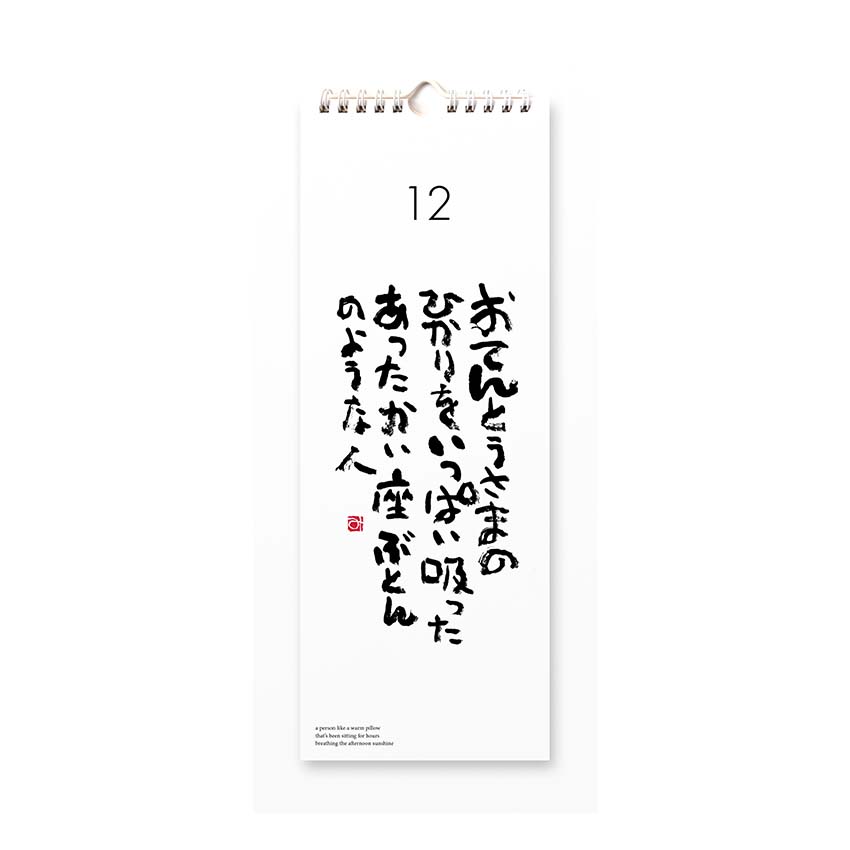 12
おてんとうさまの
ひかりをいっぱい吸った
あったかい座ぶとん
のような人
a person like a warm pillow
that's been sitting for hours
breathing the afternoon sunshine